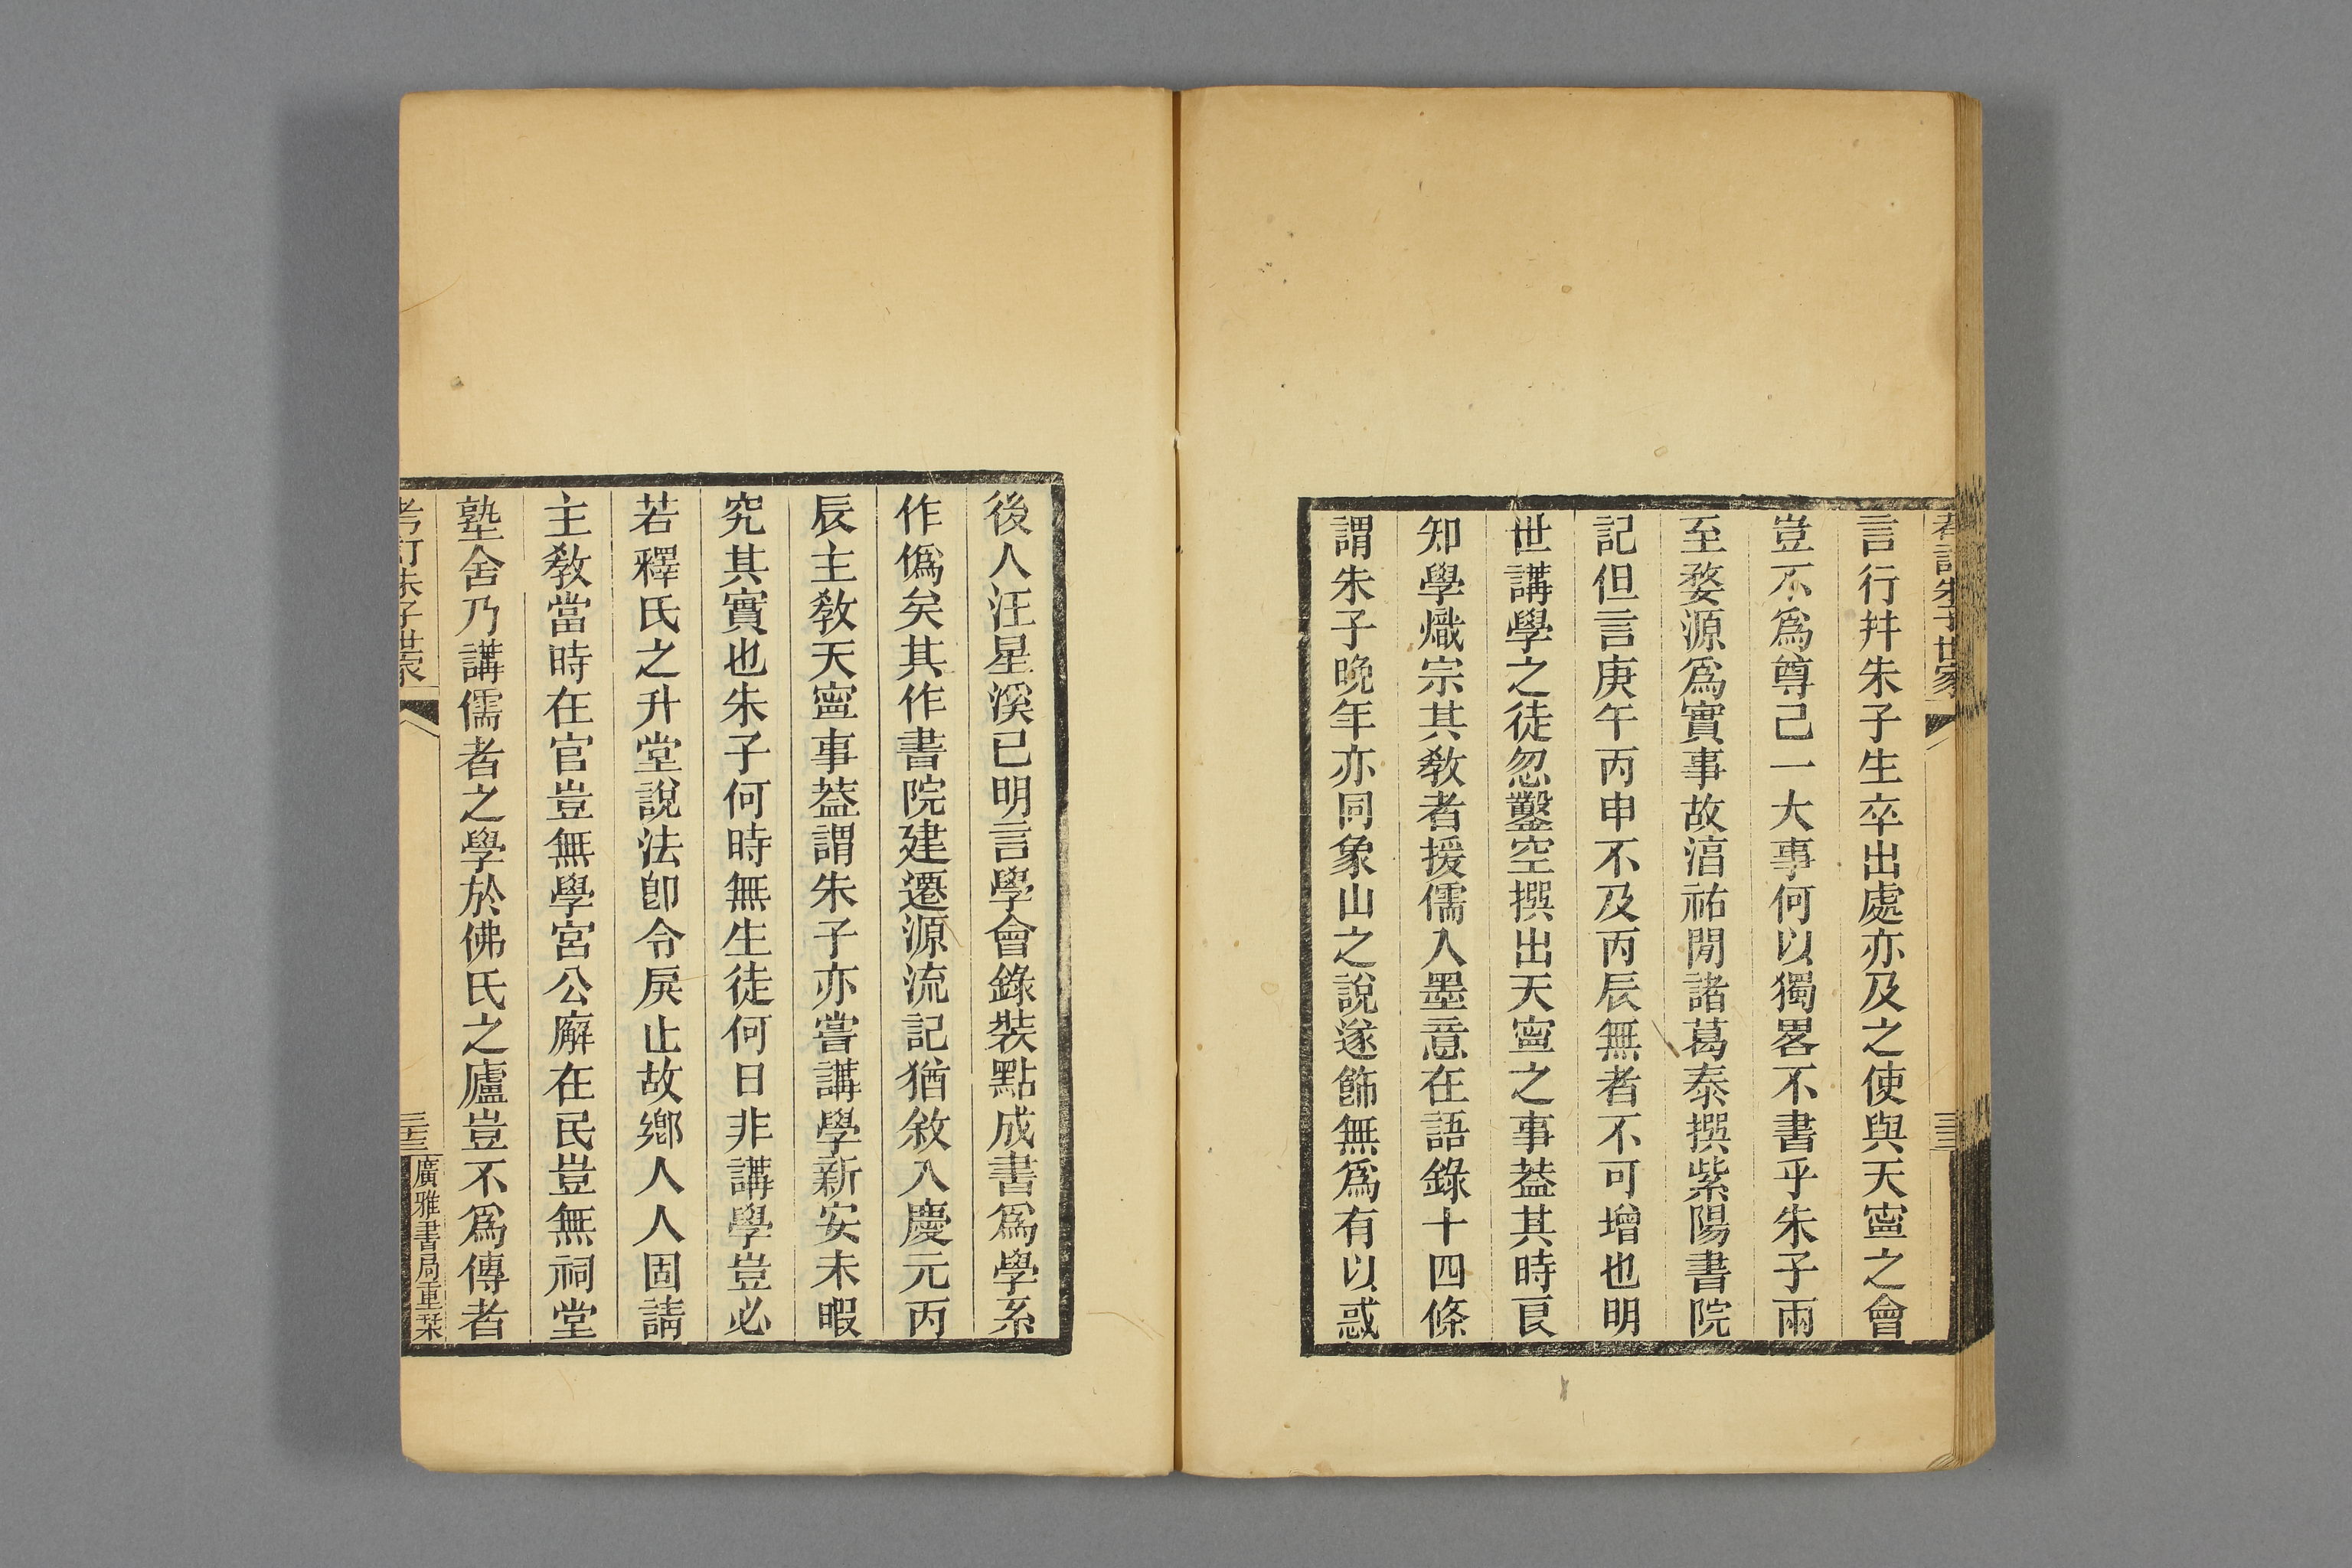 考訂朱子世家
言行幷朱子生卒出處亦及之使與天寍之會
豈不爲尊己一大事何以獨畧不書乎朱子兩
至婺源爲實事故湻祐閒諸葛泰撰紫陽書院
記但言庚午丙申不及丙辰無者不可增也明
世講學之徒忽鑿空撰出天寍之事葢其時良
知學熾宗其敎者援儒入墨意在語錄十四條
謂朱子晚年亦同象山之說遂飾無爲有以惑
後人汪星溪已明言學會錄裝點成書爲學系
作僞矣其作書院建遷源流記猶敘入慶元丙
辰主敎天寍事葢謂朱子亦嘗講學新安未暇
究其實也朱子何時無生徒何日非講學豈必
若釋氏之升堂說法卽令戾止故鄉人人固請
主敎當時在官豈無學宮公廨在民豈無祠堂
塾舍乃講儒者之學於佛氏之廬豈不爲傳者
考訂朱子世家
廣雅書局重栞